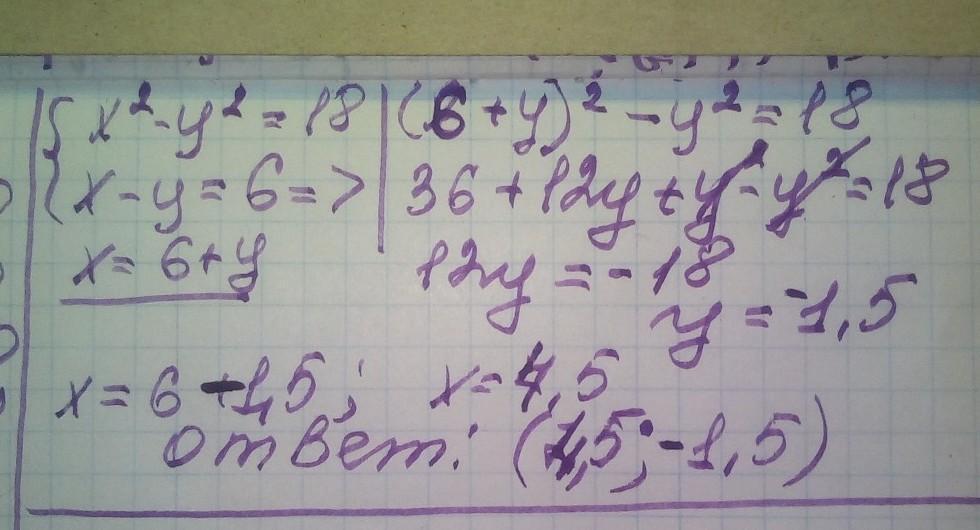 x² - y² = 18
x - y = 6 =>
x = 6 + y
(6 + y)² - y² = 18
36 + 12y + y² - y² = 18
12y = -18
y = -1,5
x = 6 - 1,5; x = 4,5
Ответ: (4,5; -1,5)